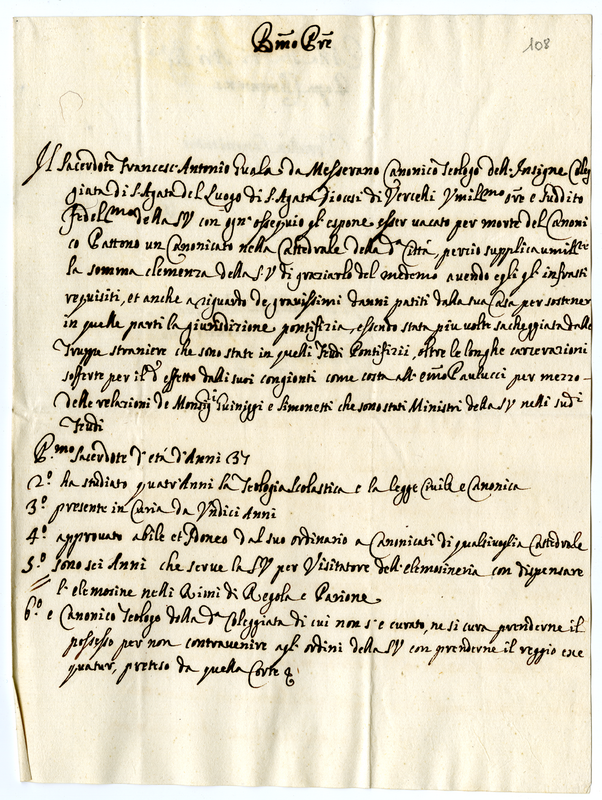 B.mo Pre
108
Il Sacerdote Francesc' Antonio Guala da Messerano Canonico Teologo dell' Insigne Colleg
giata di S. Agata del Luogo di S. Agata Diocesi di Vercelli Vmill.mo ore e suddito
Fedel.mo della SV con ogn' ossequio gl' espone esser vacato per morte del Canoni
co Battono un Canonicato nella Cattedrale della d.a Città, perciò supplica umil.te
la somma clemenza della S.V di graziarlo del medemo avendo egli gl' infrasti
requisiti, et anche a riguardo de gravissimi danni patiti dalla sua Casa per sostener
in quelle parti la giurisdizione pontifizia, essendo stata piu volte saccheggiata dalle
Truppe straniere che sono state in quelli Feudi Pontifizii, oltre le longhe carcerazioni
sofferte per il d.o effetto dalli suoi congionti come costa all' em̃o Paulucci per mezzo
delle relazioni de Monsig.i Guinigi e Simonetti che sono stati Ministri della SV nelli sud.i
Feudi
P.mo Sacerdote d' età d' Anni 37
2.o ha studiato quatr' Anni la Teologia scolastica e la legge Civile e Canonica
3.o presente in Curia da Vndici Anni
4.o approvato abile et Idoneo dal suo ordinario a Canonicati di qualsivoglia Cattedrale
5.o sono sei Anni che serve la SV per Visitatore dell' elemosineria con dispensare
l' elemosine nelli Rioni di Regola e Parione
6.o e Canonico Teologo della d.a Coleggiata di cui non s' e curato, ne si cura prenderne il
possesso per non contravenire agl' ordini della SV con prenderne il reggio exe
quatur, preteso da quella Corte &